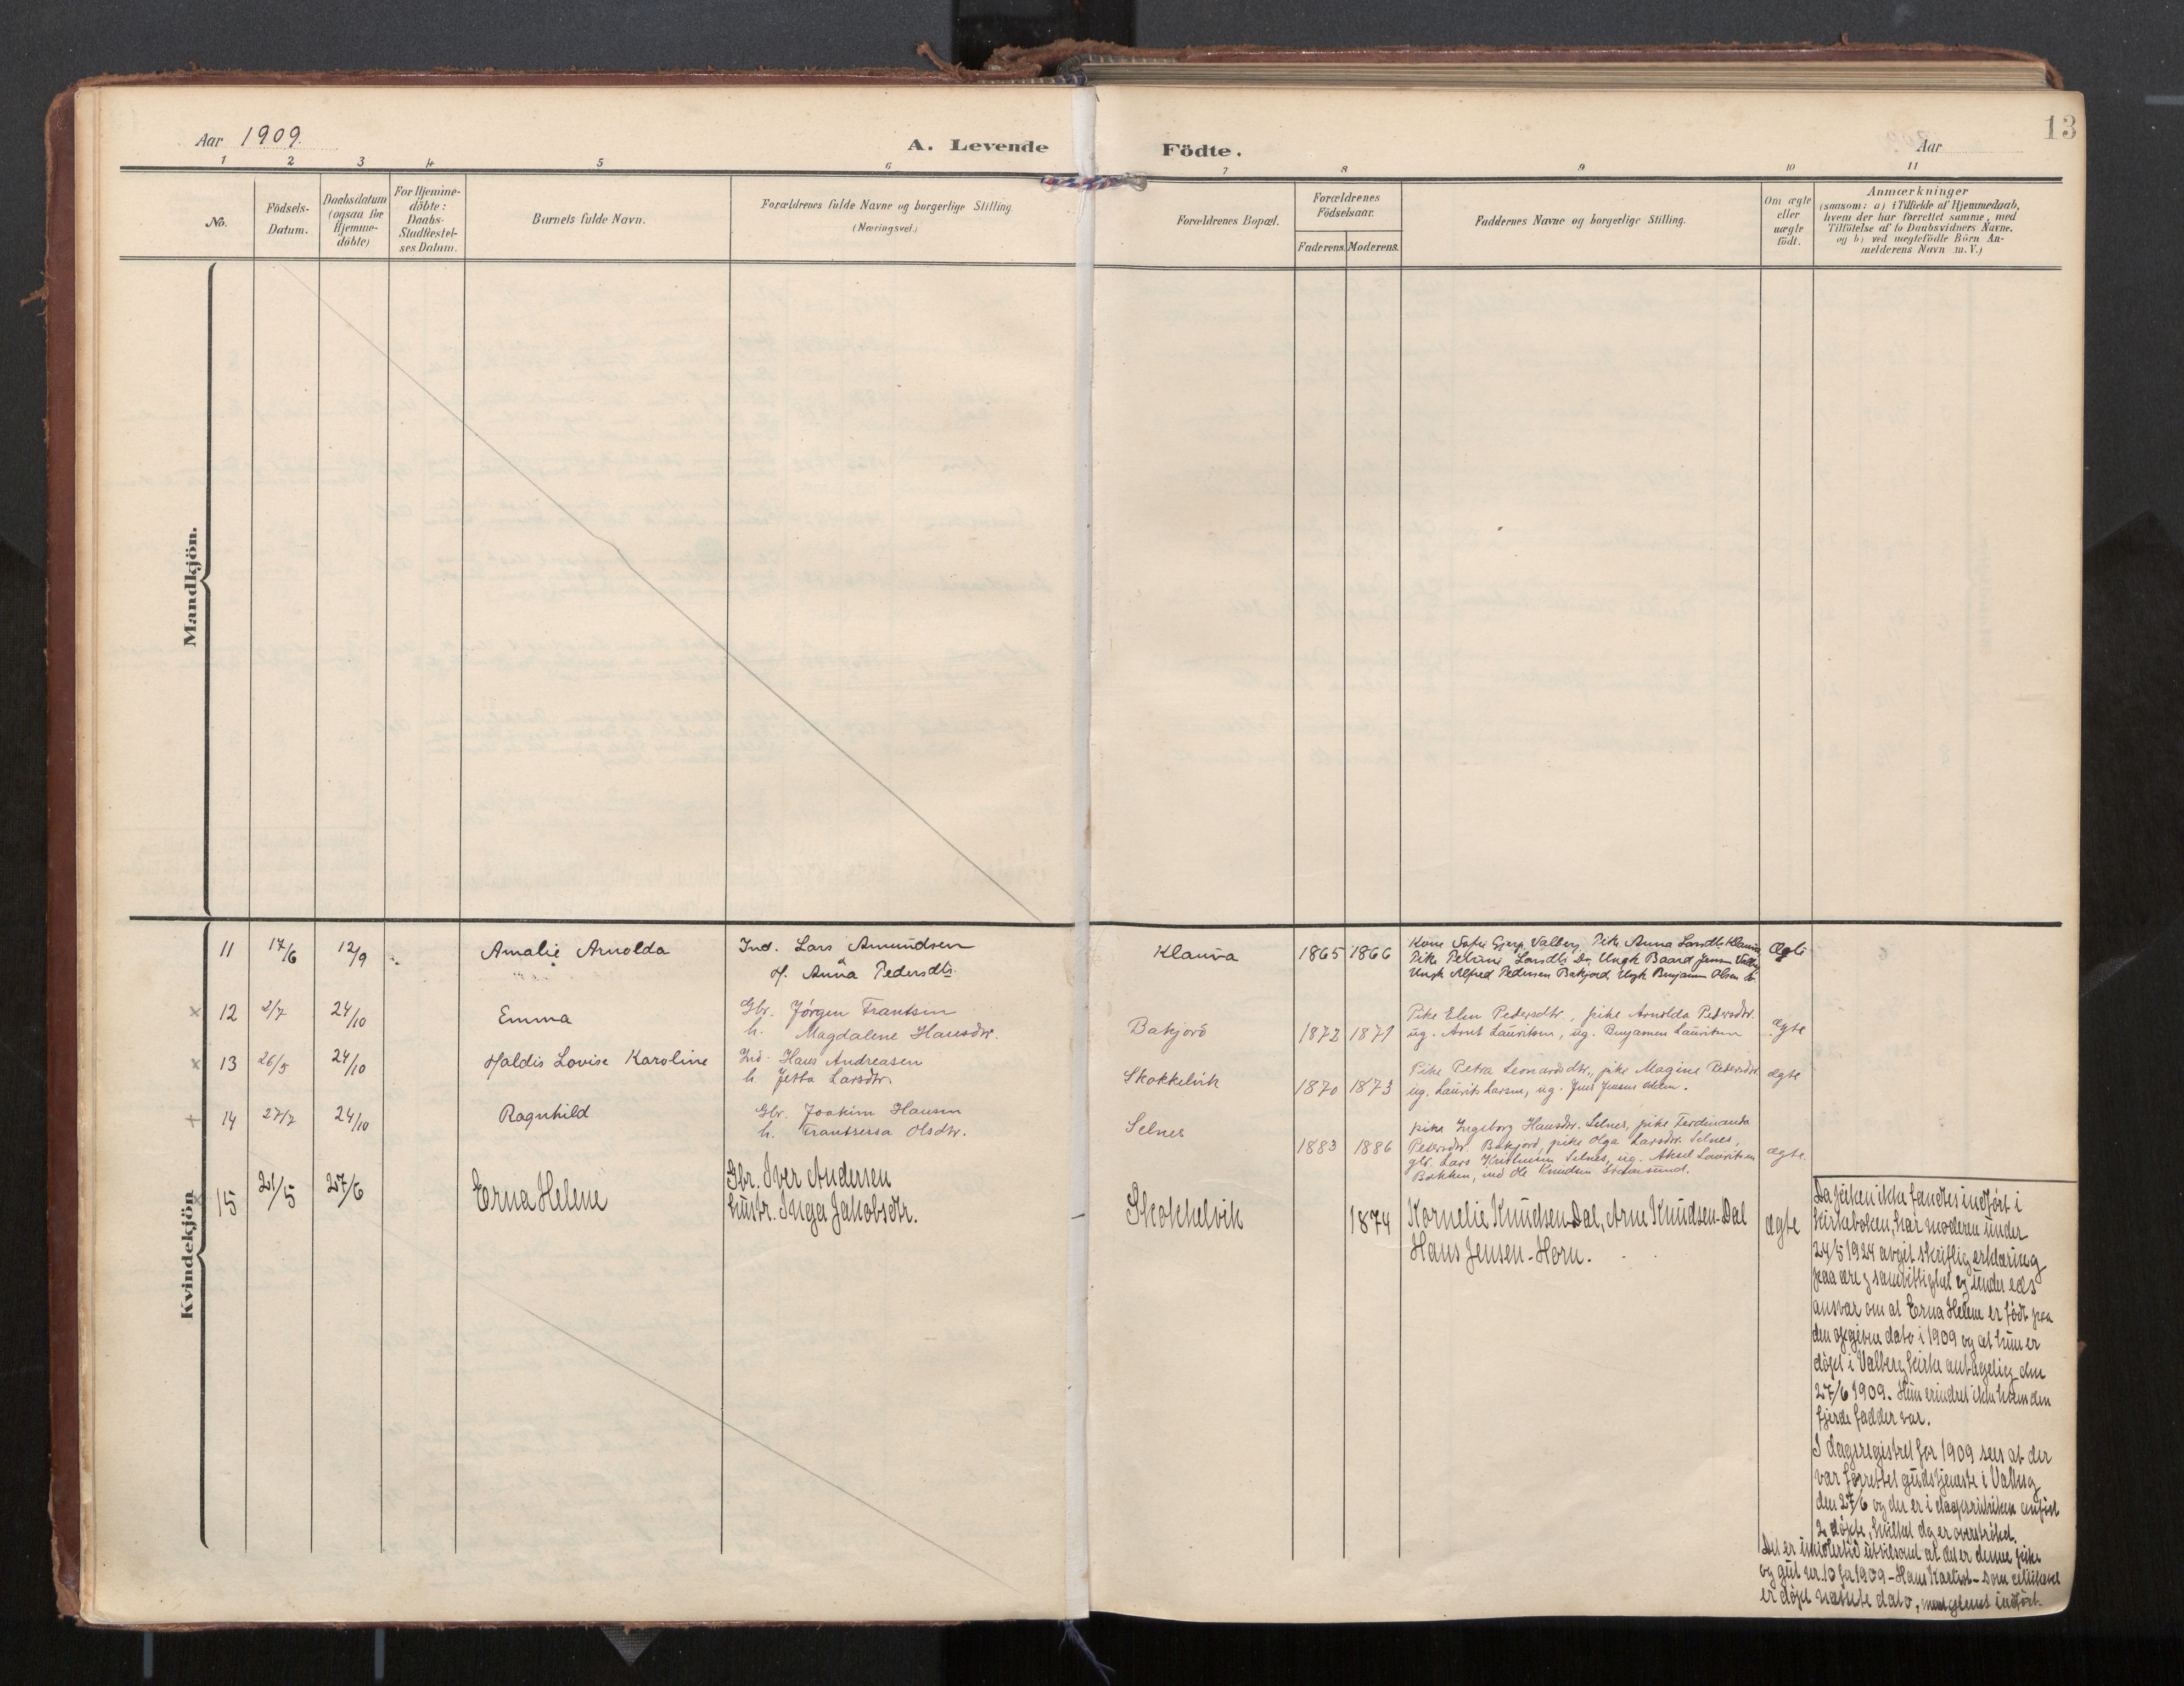 13
Aar 1909.
A. Levende Födte.
Aar
1 2 3 4 5 6 7 8 9 10 11
No.
Födsels-
Datum.
Daabsdatum
(ogsaa for
Hjemme-
döbte)
For Hjemme-
döbte:
Daabs-
Stadfestel-
ses Datum.
Barnets fulde Navn.
Forældrenes fulde Navne og borgerlige Stilling.
(Næringsvei.)
Forældrenes Bopæl.
Forældrenes
Födselsaar.
Faderens. Moderens.
Faddernes Navne og borgerlige Stilling.
Om ægte
eller
uægte
födt.
Anmærkninger
(saasom: a) i Tilfælde af Hjemmedaab,
hvem der har forrettet samme, med
Tilföielse af to Daabsvidners Navne,
og b) ved uægtefödte Börn An-
melderens Navn m. V.)
Mandkjön.
Kvindekjön
11 17/6 12/9 Amalie Arnolda
Ind. Lars Amundsen
&
H. Anna Pedersdtr.
Klauva 1865 1866
Kone Sofie Gjerp Valberg, Pike Anna Larsdtr. Klauva
Pike Petrine Larsdtr. Do, Ungk Baard Jensen Valberg
Ungk Alfred Pedersen Bakjord, Ungk Benjamin Olsen
Ægte
x 12 2/7 24/10 Emma
Gbr. Jørgen Frantsen
h. Magdalene Hansdtr.
Bakjord 1872 1871
Pike Elen Pedersdtr., pike Arnolda Pedersdtr.
ug. Arnt Lauritsen, ug. Benjamen Lauritsen
ægte
x 13 26/5 24/10 Haldis Lovise Karoline
Ind. Hans Andreasen
h. Jetta Larsdtr.
Skokkelvik 1870 1873
Pike Petra Leonardsdtr., pike Magine Pedersdtr.
ug. Laurits Larsen, ug. Jens Jensen
ægte
+ 14 27/7 24/10 Ragnhild
Gbr. Joakim Hansen
h. Frantsessa Olsdtr.
Selnes 1883 1886
pike Ingeborg Hansdtr. Selnes, pike Ferdinanda
Pedersdtr. Bakjord, pike Olga Larsdtr. Selnes,
gbr. Lars Selnes, ug. Aksel Lauritsen
Bakken, ind Ole Knudsen
ægte.
x 15 21/5 27/6 Erna Helene
Gbr. Iver Andersen
hustr. Inga Jakobsdtr.
Skokkelvik 1874
Kornelie Knudsen-Dal, Arne Knudsen-Dal
Hans Jensen-Horn.
ægte
Da piken ikke fandtes indført i
kirkeboken, har moderen under
24/5 1924 avgit skriftlig erklæring
paa ære og samvittighet og under eds
ansvar om at Erna Helene er født paa
den opgivne dato i 1909 og at hun er
døpt i Valberg kirke antagelig den
27/6 1909. Hun erindret ikke hvem den
fjerde fadder var.
I dagsregistret for 1909 sees at der
var forrettet gudstjeneste i Valberg
den 27/6 og der er i daapsrubrikken anført
2 døpte, hvilket dog er overstrøket.
Det er imidlertid utvilsomt at det er denne pike
og gut nr. 10 for 1909 - Hans - som
er døpt nævnte dato, men glemt indført.